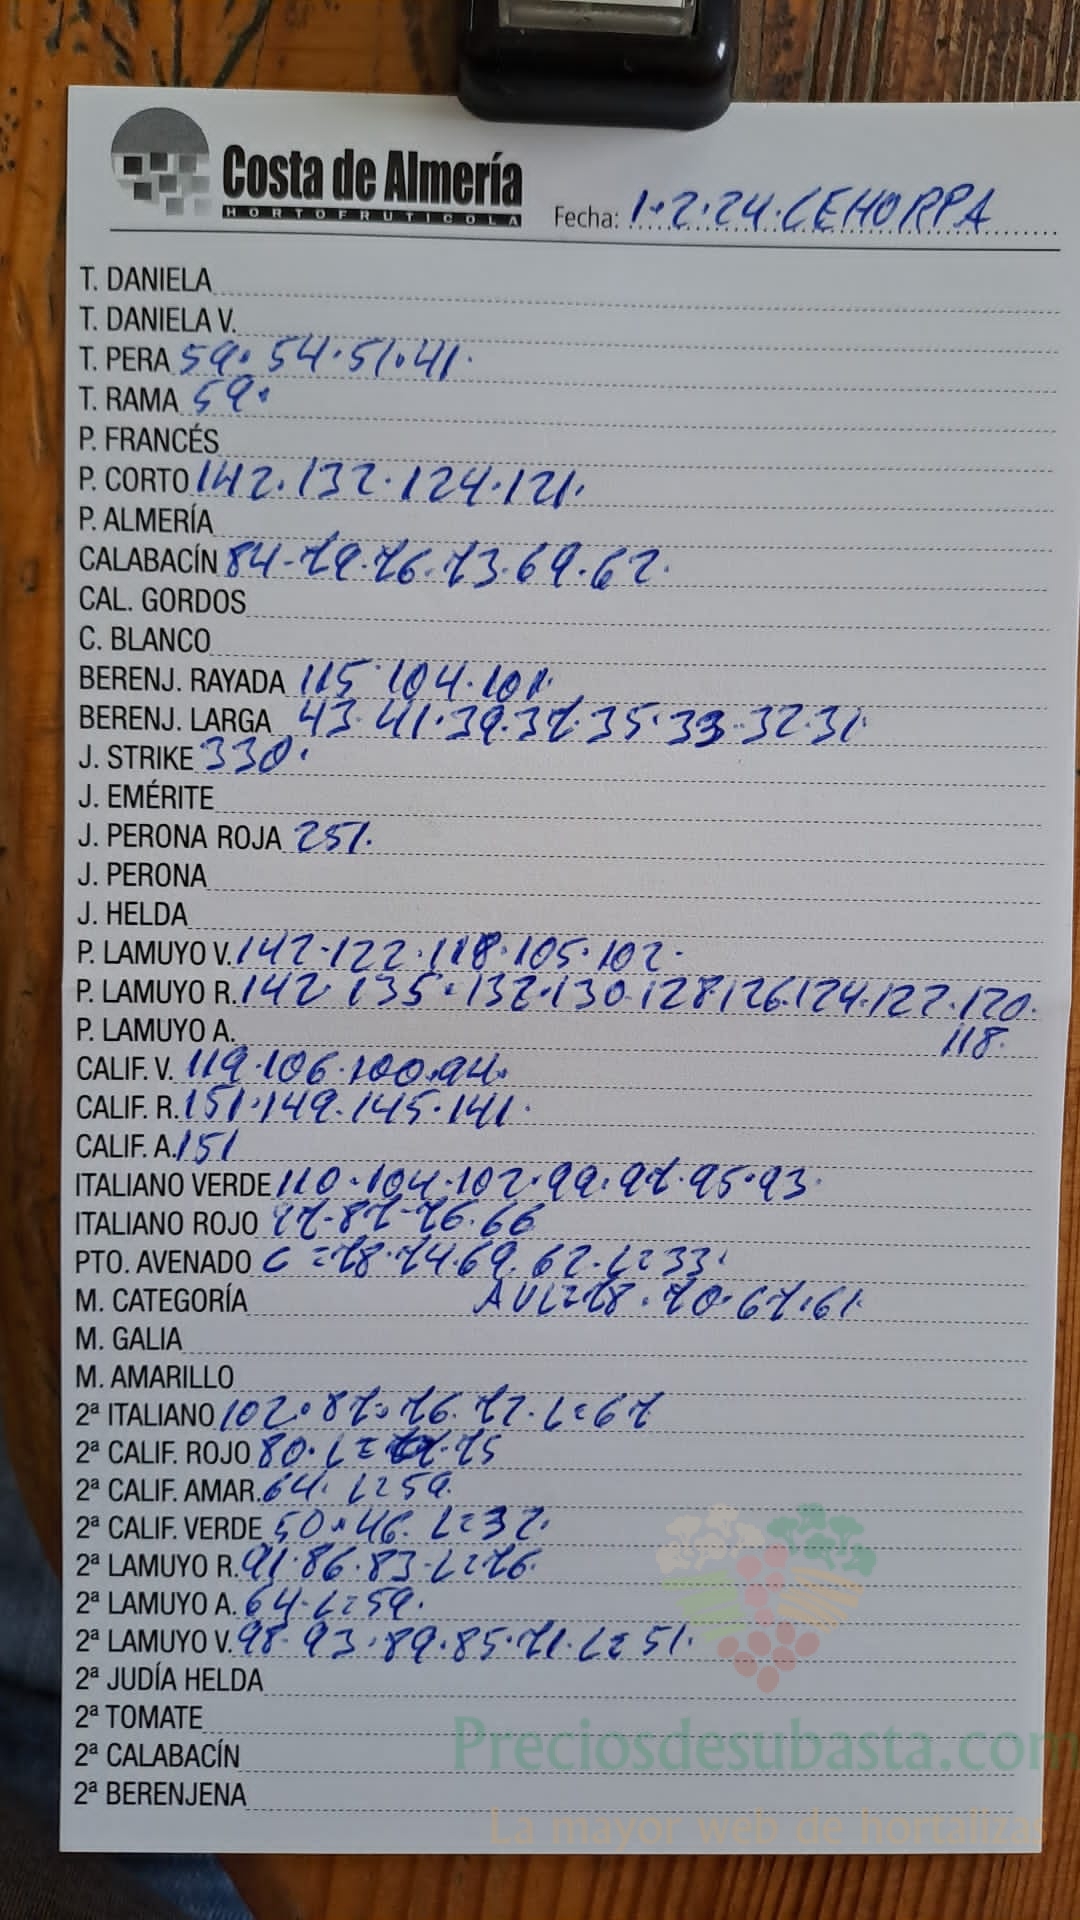 Costa de Almería
HORTOFRUTICOLA
Fecha: 1.2.24.CEHORPA
T. DANIELA
T. DANIELA V.
T. PERA 59. 54.51.41.
T. RAMA 59.
P. FRANCÉS
P. CORTO 142.132.124.121.
P. ALMERÍA
CALABACÍN 84-79.76.73.69.62.
CAL. GORDOS
C. BLANCO
BERENJ. RAYADA 115.104.101.
BERENJ. LARGA 43.41.39.37.35.33.32.31.
J. STRIKE 330.
J. EMÉRITE
J. PERONA ROJA 251.
J. PERONA
J. HELDA
P. LAMUYO V. 142.122.118.105.102.
P. LAMUYO R. 142.135.132.130.128.126.124.122.120.
P. LAMUYO A. 118.
CALIF. V. 119.106.100.94.
CALIF. R. 151.149.145.141.
CALIF. A. 151
ITALIANO VERDE 110.104.102.99.97.95.93.
ITALIANO ROJO 87-76.66
PTO. AVENADO C=78.74.69.62.L=33.
M. CATEGORÍA AVL=78.70.67.61.
M. GALIA
M. AMARILLO
2ª ITALIANO 102.87.76.72.L=67
2ª CALIF. ROJO 80.L= 75
2ª CALIF. AMAR. 64. L=59.
2ª CALIF. VERDE 50.46. L=37.
2ª LAMUYO R. 91.86.83-L=76.
2ª LAMUYO A. 64-L=59.
2ª LAMUYO V. 98.93.89.85.71.L=51.
2ª JUDÍA HELDA
2ª TOMATE
2ª CALABACÍN
2ª BERENJENA
Preciosdesubasta.com
La mayor web de hortalizas